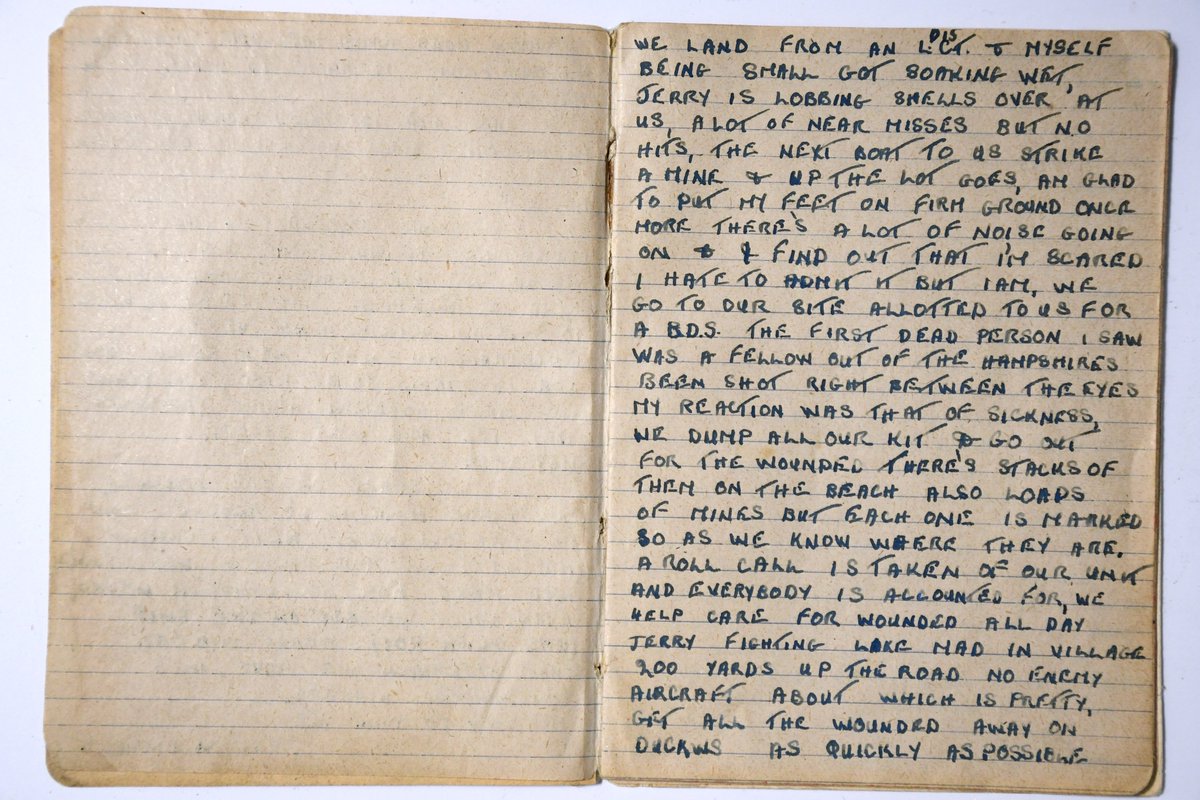 WE LAND FROM AN L.C.T. & MYSELF
BEING SMALL GOT SOAKING WET,
JERRY IS LOBBING SHELLS OVER AT
US, A LOT OF NEAR MISSES BUT NO
HITS, THE NEXT BOAT TO US STRIKE
A MINE & UP THE LOT GOES, AM GLAD
TO PUT MY FEET ON FIRM GROUND ONCE
MORE THERE'S A LOT OF NOISE GOING
ON & I FIND OUT THAT I'M SCARED
I HATE TO ADMIT IT BUT I AM, WE
GO TO OUR SITE ALLOTTED TO US FOR
A B.D.S. THE FIRST DEAD PERSON I SAW
WAS A FELLOW OUT OF THE HAMPSHIRES
BEEN SHOT RIGHT BETWEEN THE EYES
MY REACTION WAS THAT OF SICKNESS,
WE DUMP ALL OUR KIT & GO OUT
FOR THE WOUNDED THERE'S STACKS OF
THEM ON THE BEACH ALSO LOADS
OF MINES BUT EACH ONE IS MARKED
SO AS WE KNOW WHERE THEY ARE.
A ROLL CALL IS TAKEN OF OUR UNIT
AND EVERYBODY IS ACCOUNTED FOR, WE
HELP CARE FOR WOUNDED ALL DAY
JERRY FIGHTING LIKE MAD IN VILLAGE
200 YARDS UP THE ROAD NO ENEMY
AIRCRAFT ABOUT WHICH IS PRETTY,
GET ALL THE WOUNDED AWAY ON
DUCKWS AS QUICKLY AS POSSIBLE